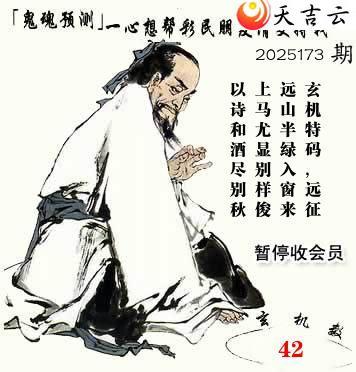 天吉云
「鬼魂预测」一心想帮彩民朋
2025173 期
玄机特码，远征
远山半绿入窗来
上马尤显别样俊
以诗和酒尽别秋
暂停收会员
玄机数
42